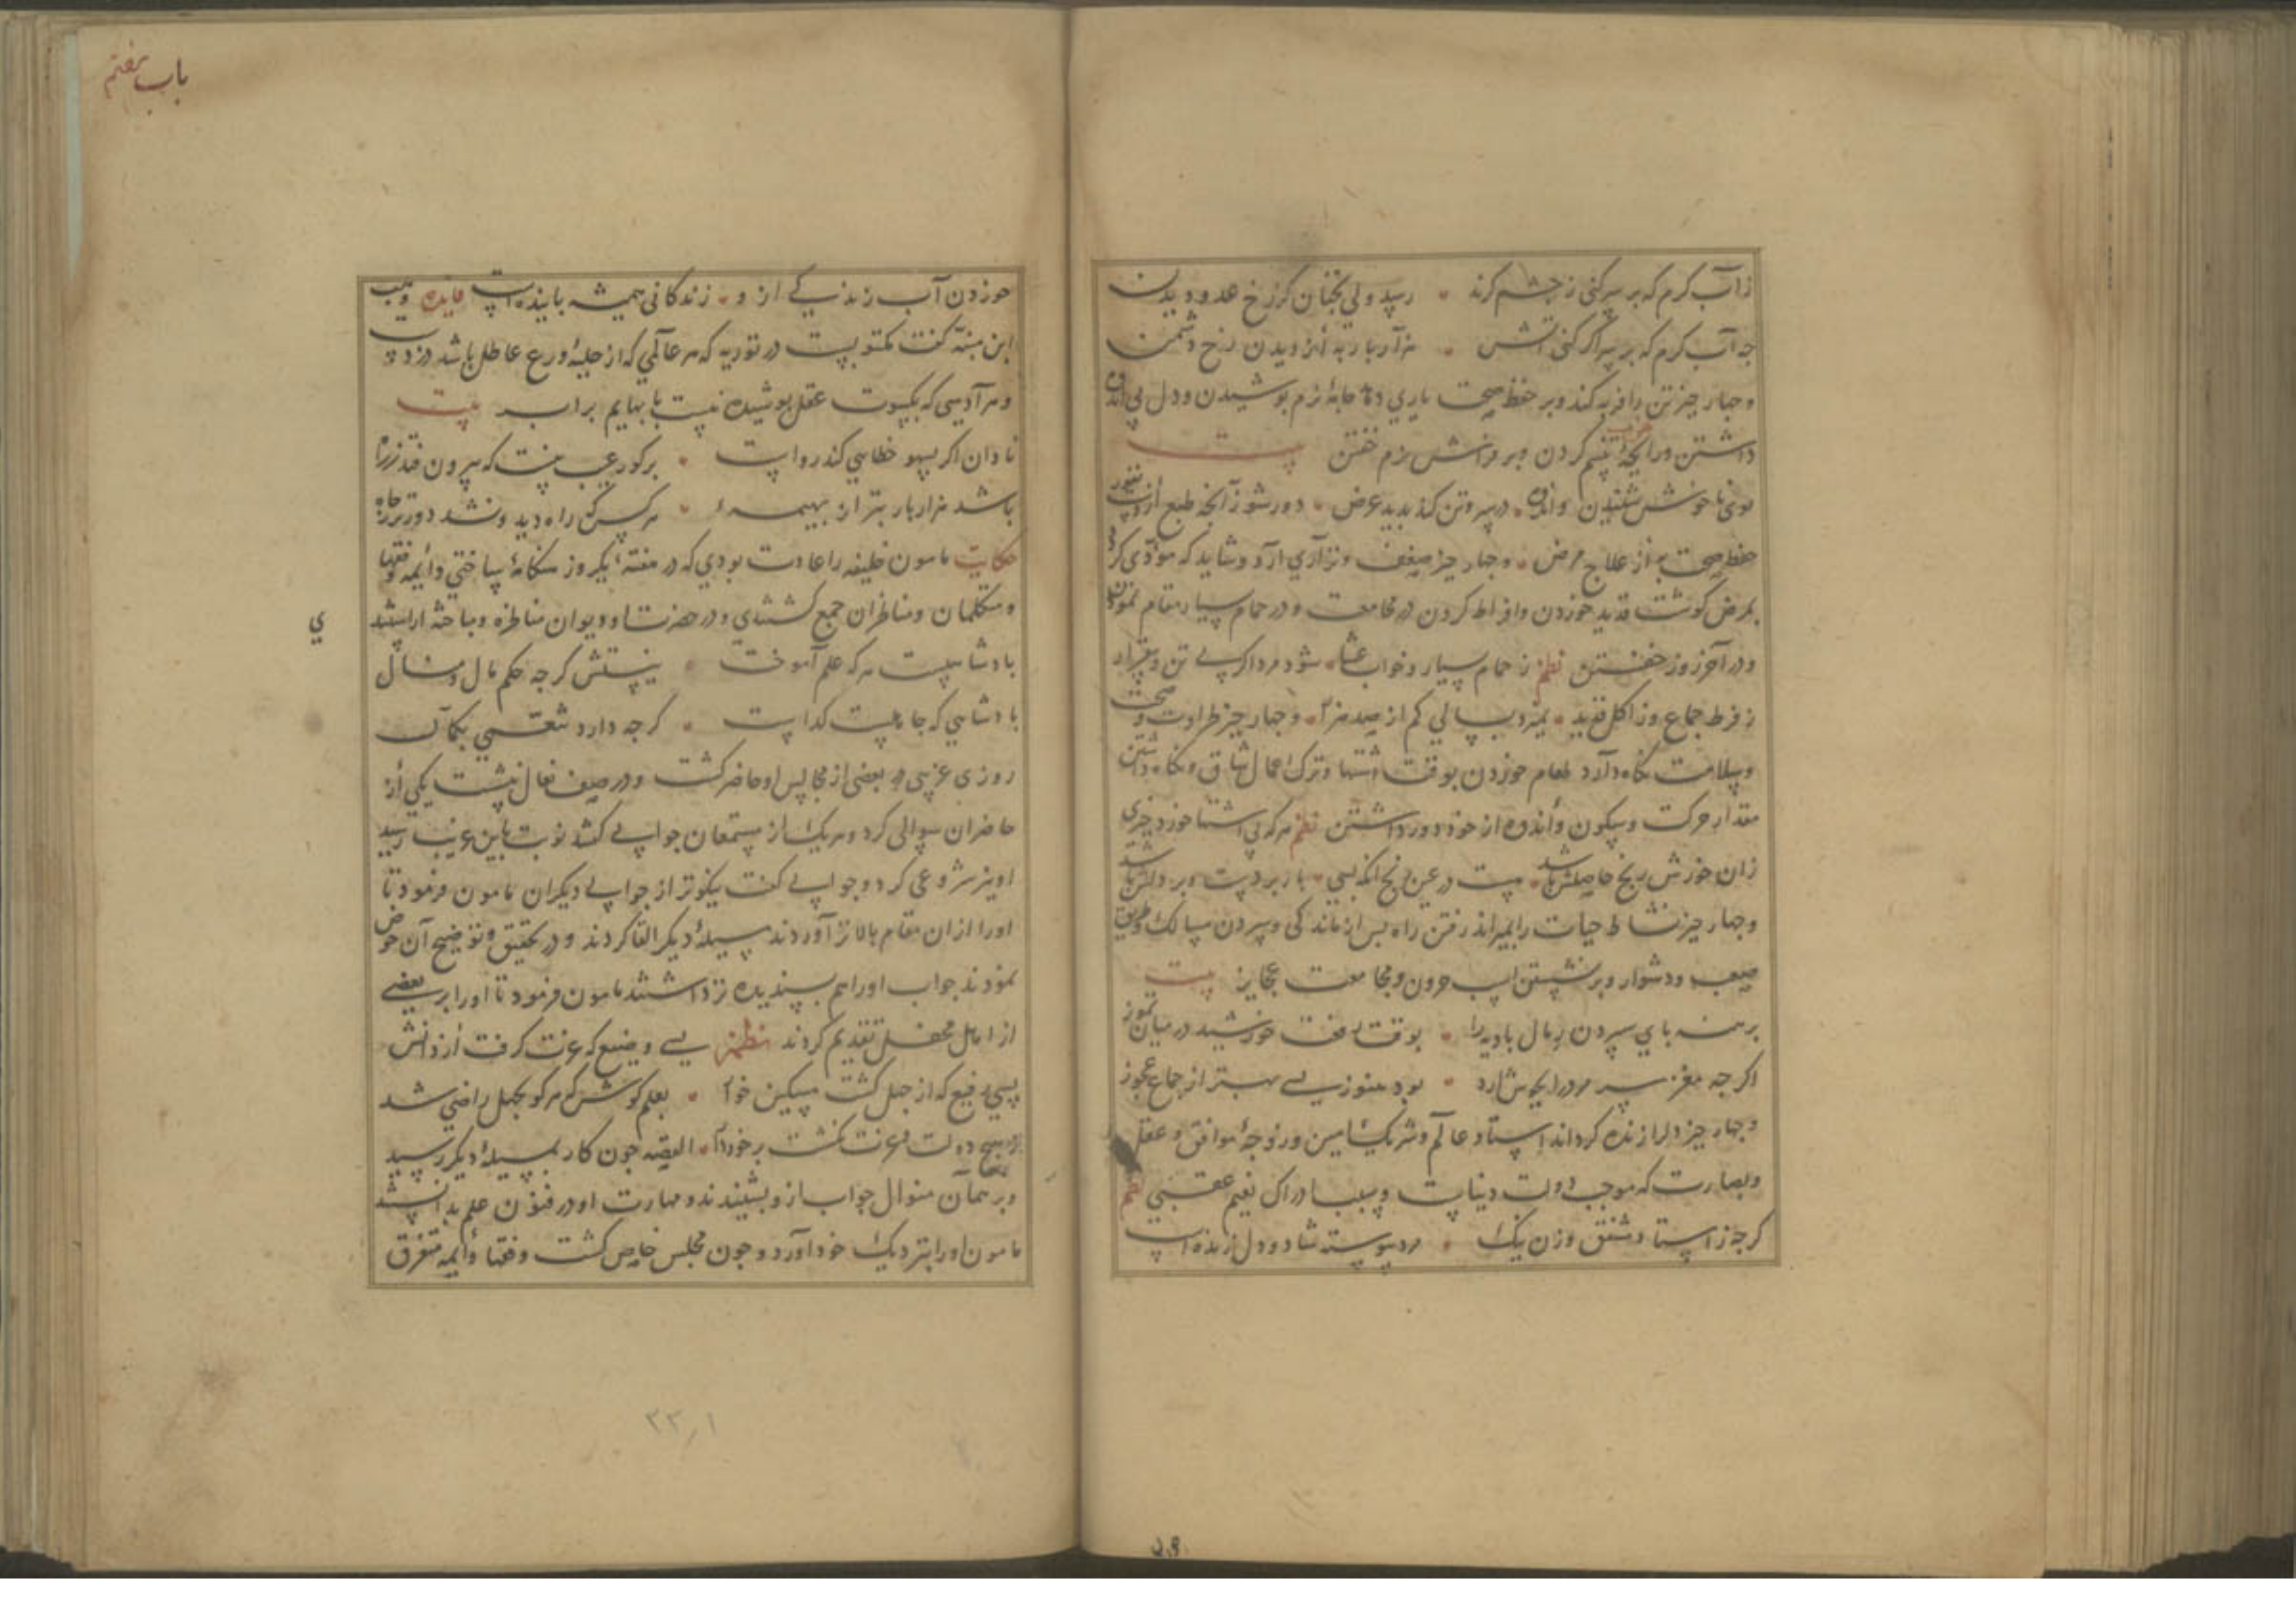 زآب كرم كه بر سر كنى ز چشم كزند • رسد ولى نجنان كز رخ عدو ديدن
جه آب كرم كه بر سر اكر كنى آتش • هزار بار به از ديدن رخ دشمن
و جهار جيز تن را فربه كند و بر حفظ صحت يارى دهد جامهٔ نرم بوشيدن و دل بى اندوه
داشتن و رايحهٔ تنسم كردن و بر فراش نرم خفتن بيت
بوى ناخوش شنيدن و اندوه • در سر و تن كند بديد عرض • دور شو ز آنجه طبع ازوست نفور
حفظ صحت به از علاج مرض • و جهار جيز ضعف و نزارى آرد و شايد كه مؤدى كردد
بمرض كوشت قديد خوردن و افراط كردن در مجامعت و در حمام بسيار مقام نمودن
و در آخر روز خفتن نظم ز حمام بسيار و خواب عشا • شود مرد اكر بى تن و بيقرار
ز فرط جماع وز اكل قديد • بميرد بسالى كم از صد هزار • و جهار جيز طراوت و صحت
و سلامت نكاه دارد طعام خوردن بوقت اشتها و ترك اعمال شاق و نكاه داشتن
مقدار حركت و سكون و اندوه از خود دور داشتن نظم هر كه بى اشتها خورد جيزى
زان خورش رنج حاصلش باشد • هست در عين رنج انكه بسى • بار بر دست و بر دلش باشد
و جهار جيز نشاط حيات را بميراند رفتن راه بس از ماندكى و سپردن مسالك و طريق
صعب و دشوار و بر نشستن اسب حرون و مجامعت عجايز بيت
برهنه باى سپردن رمال باديه را • بوقت تفت خورشيد در ميان تموز
اكر جه مغز سر مرد را بجوش آرد • بود هنوز بسى بهتر از جماع عجوز
و جهار جيز دل را زنده كرداند استاد عالم و شريك امين و زوجهٔ موافق و عقل
و بصارت كه موجب دولت دنياست و سبب ادراك نعيم عقبى نظم
كرجه ز استاد مشفق و زن نيك • مرد پيوسته شاد و دل زنده است
باب هفتم
خوردن آب زندكى از و • زندكانى هميشه باينده است فايده وهب
ابن منبه كفت مكتوبست در توريه كه هر عالمى كه از حليهٔ ورع عاطل باشد دزدست
و هر آدمى كه بكسوت عقل بوشيده نيست با بهايم برابر بيت
نادان اكر بسهو خطايى كند رواست • بر كور عيب نيست كه بيرون فتد ز راه
باشد هزار بار بتر از بهيمهٔ • هر كس كه راه ديد و نشد دورتر ز جاه
حكايت مامون خليفه را عادت بودى كه در هفتهٔ يكروز هنكامهٔ ساختى و ائمه و فقها
و متكلمان و مناظران جمع كشتندى و در حضرت او ديوان مناظره و مباحثه آراستند
ي
بادشاهيست هر كه علم آموخت • نيستش كرجه حكم مال و منال
بادشاهى كه جاهلست كداست • كرجه دارد تنعمى بكمال
روزى غريبى در بعضى از مجالس او حاضر كشت و در صف نعال نشست يكى از
حاضران سوالى كرد و هر يك از مستمعان جوابى كفتند نوبت باين غريب رسيد
او نيز شروعى كرد و جوابى كفت نيكوتر از جواب ديكران مامون فرمود تا
او را از ان مقام بالاتر آوردند مسيلهٔ ديكر القا كردند و در تحقيق و توضيح آن خوض
نمودند جواب او را هم بسنديده تر داشتند مامون فرمود تا او را بر بعضى
از اماثل محفل تقديم كردند نظم بسى وضيع كه عزت كرفت از دانش
بسى رفيع كه از جهل كشت مسكين خوار • بعلم كوش كه هر كو بجهل راضى شد
ز هيچ دولت و عزت نكشت برخوردار • القصه جون كار بمسيلهٔ ديكر رسيد
و بر همان منوال جواب ازو بشنيدند و مهارت او در فنون علم بدانستند
مامون او را بنزديك خود آورد و جون مجلس خاص كشت و فقها و ائمه متفرق
۳۳۱